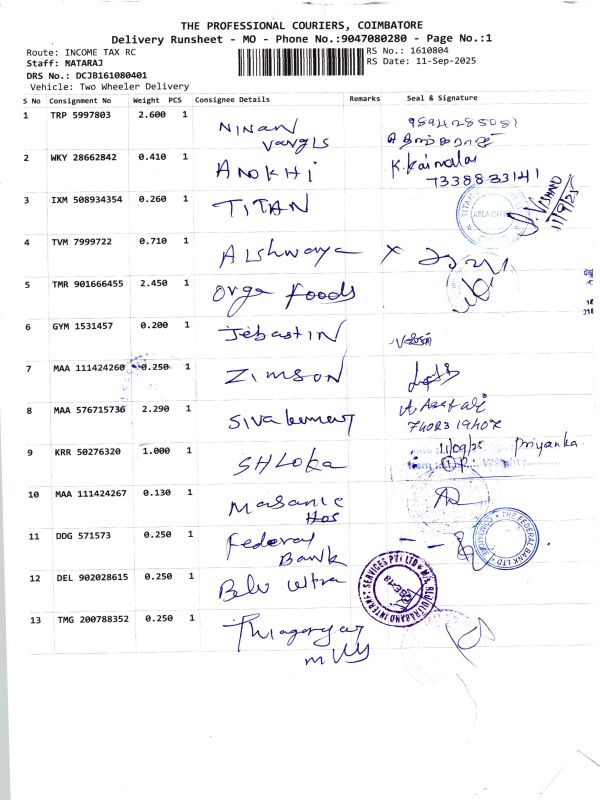 THE PROFESSIONAL COURIERS, COIMBATORE
Delivery Runsheet - MO - Phone No.:9047080280 - Page No.:1
Route: INCOME TAX RC
RS No.: 1610804
Staff: NATARAJ
RS Date: 11-Sep-2025
DRS No.: DCJB161080401
Vehicle: Two Wheeler Delivery
S No Consignment No Weight PCS Consignee Details Remarks Seal & Signature
1 TRP 5997803 2.600 1 NINAN
2 WKY 28662842 0.410 1 ANOKHI
7338833141
3 IXM 508934354 0.260 1 TITAN
AREA OFFICE
11/9/25
4 TVM 7999722 0.710 1 AIshwarya
5 TMR 901666455 2.450 1 Orga foods
6 GYM 1531457 0.200 1 JebastIN
7 MAA 111424260 0.250 1 ZIMSON
8 MAA 576715736 2.290 1
9 KRR 50276320 1.000 1 SHLOKA 11/09/25 Priyanka
10 MAA 111424267 0.130 1 Masanic
Hos
11 DDG 571573 0.250 1 Federal
Bank
THE FEDERAL BANK LTD
12 DEL 902028615 0.250 1
SERVICES PVT LTD
13 TMG 200788352 0.250 1